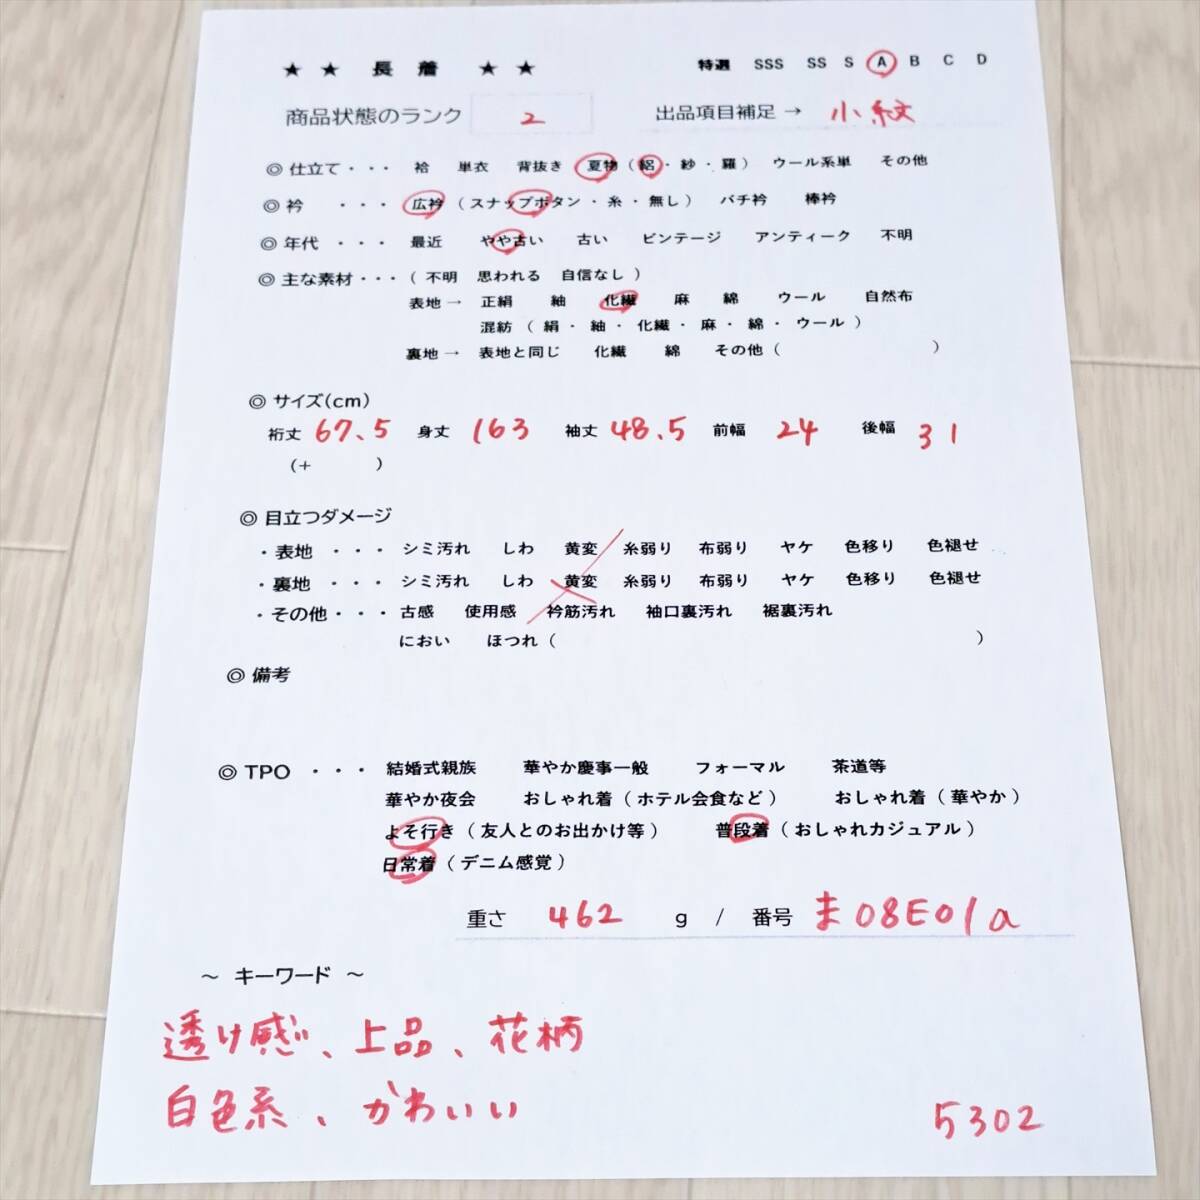 ★ ★ 長 着 ★ ★ 特選 SSS SS S A B C D
商品状態のランク 2 出品項目補足 → 小紋
◎ 仕立て・・・ 袷 単衣 背抜き 夏物 ( 絽・紗・羅 ) ウール系単 その他
◎ 衿 ・・・ 広衿 ( スナップボタン・糸・無し ) バチ衿 棒衿
◎ 年代 ・・・ 最近 やや古い 古い ビンテージ アンティーク 不明
◎ 主な素材・・・( 不明 思われる 自信なし )
表地→ 正絹 紬 化繊 麻 綿 ウール 自然布
混紡 ( 絹・紬・化繊・麻・綿・ウール )
裏地→ 表地と同じ 化繊 綿 その他 ( )
◎ サイズ(cm)
裄丈 67.5 身丈 163 袖丈 48.5 前幅 24 後幅 31
(+ )
◎ 目立つダメージ
・表地 ・・・ シミ汚れ しわ 黄変 糸弱り 布弱り ヤケ 色移り 色褪せ
・裏地 ・・・ シミ汚れ しわ 黄変 糸弱り 布弱り ヤケ 色移り 色褪せ
・その他・・・ 古感 使用感 衿筋汚れ 袖口裏汚れ 裾裏汚れ
におい ほつれ ( )
◎ 備考
◎ TPO ・・・ 結婚式親族 華やか慶事一般 フォーマル 茶道等
華やか夜会 おしゃれ着 ( ホテル会食など ) おしゃれ着 ( 華やか )
よそ行き ( 友人とのお出かけ等 ) 普段着 ( おしゃれカジュアル )
日常着 ( デニム感覚 )
重さ 462 g / 番号 ま08E01a
～ キーワード ～
透け感、上品、花柄
白色系、かわいい
5302